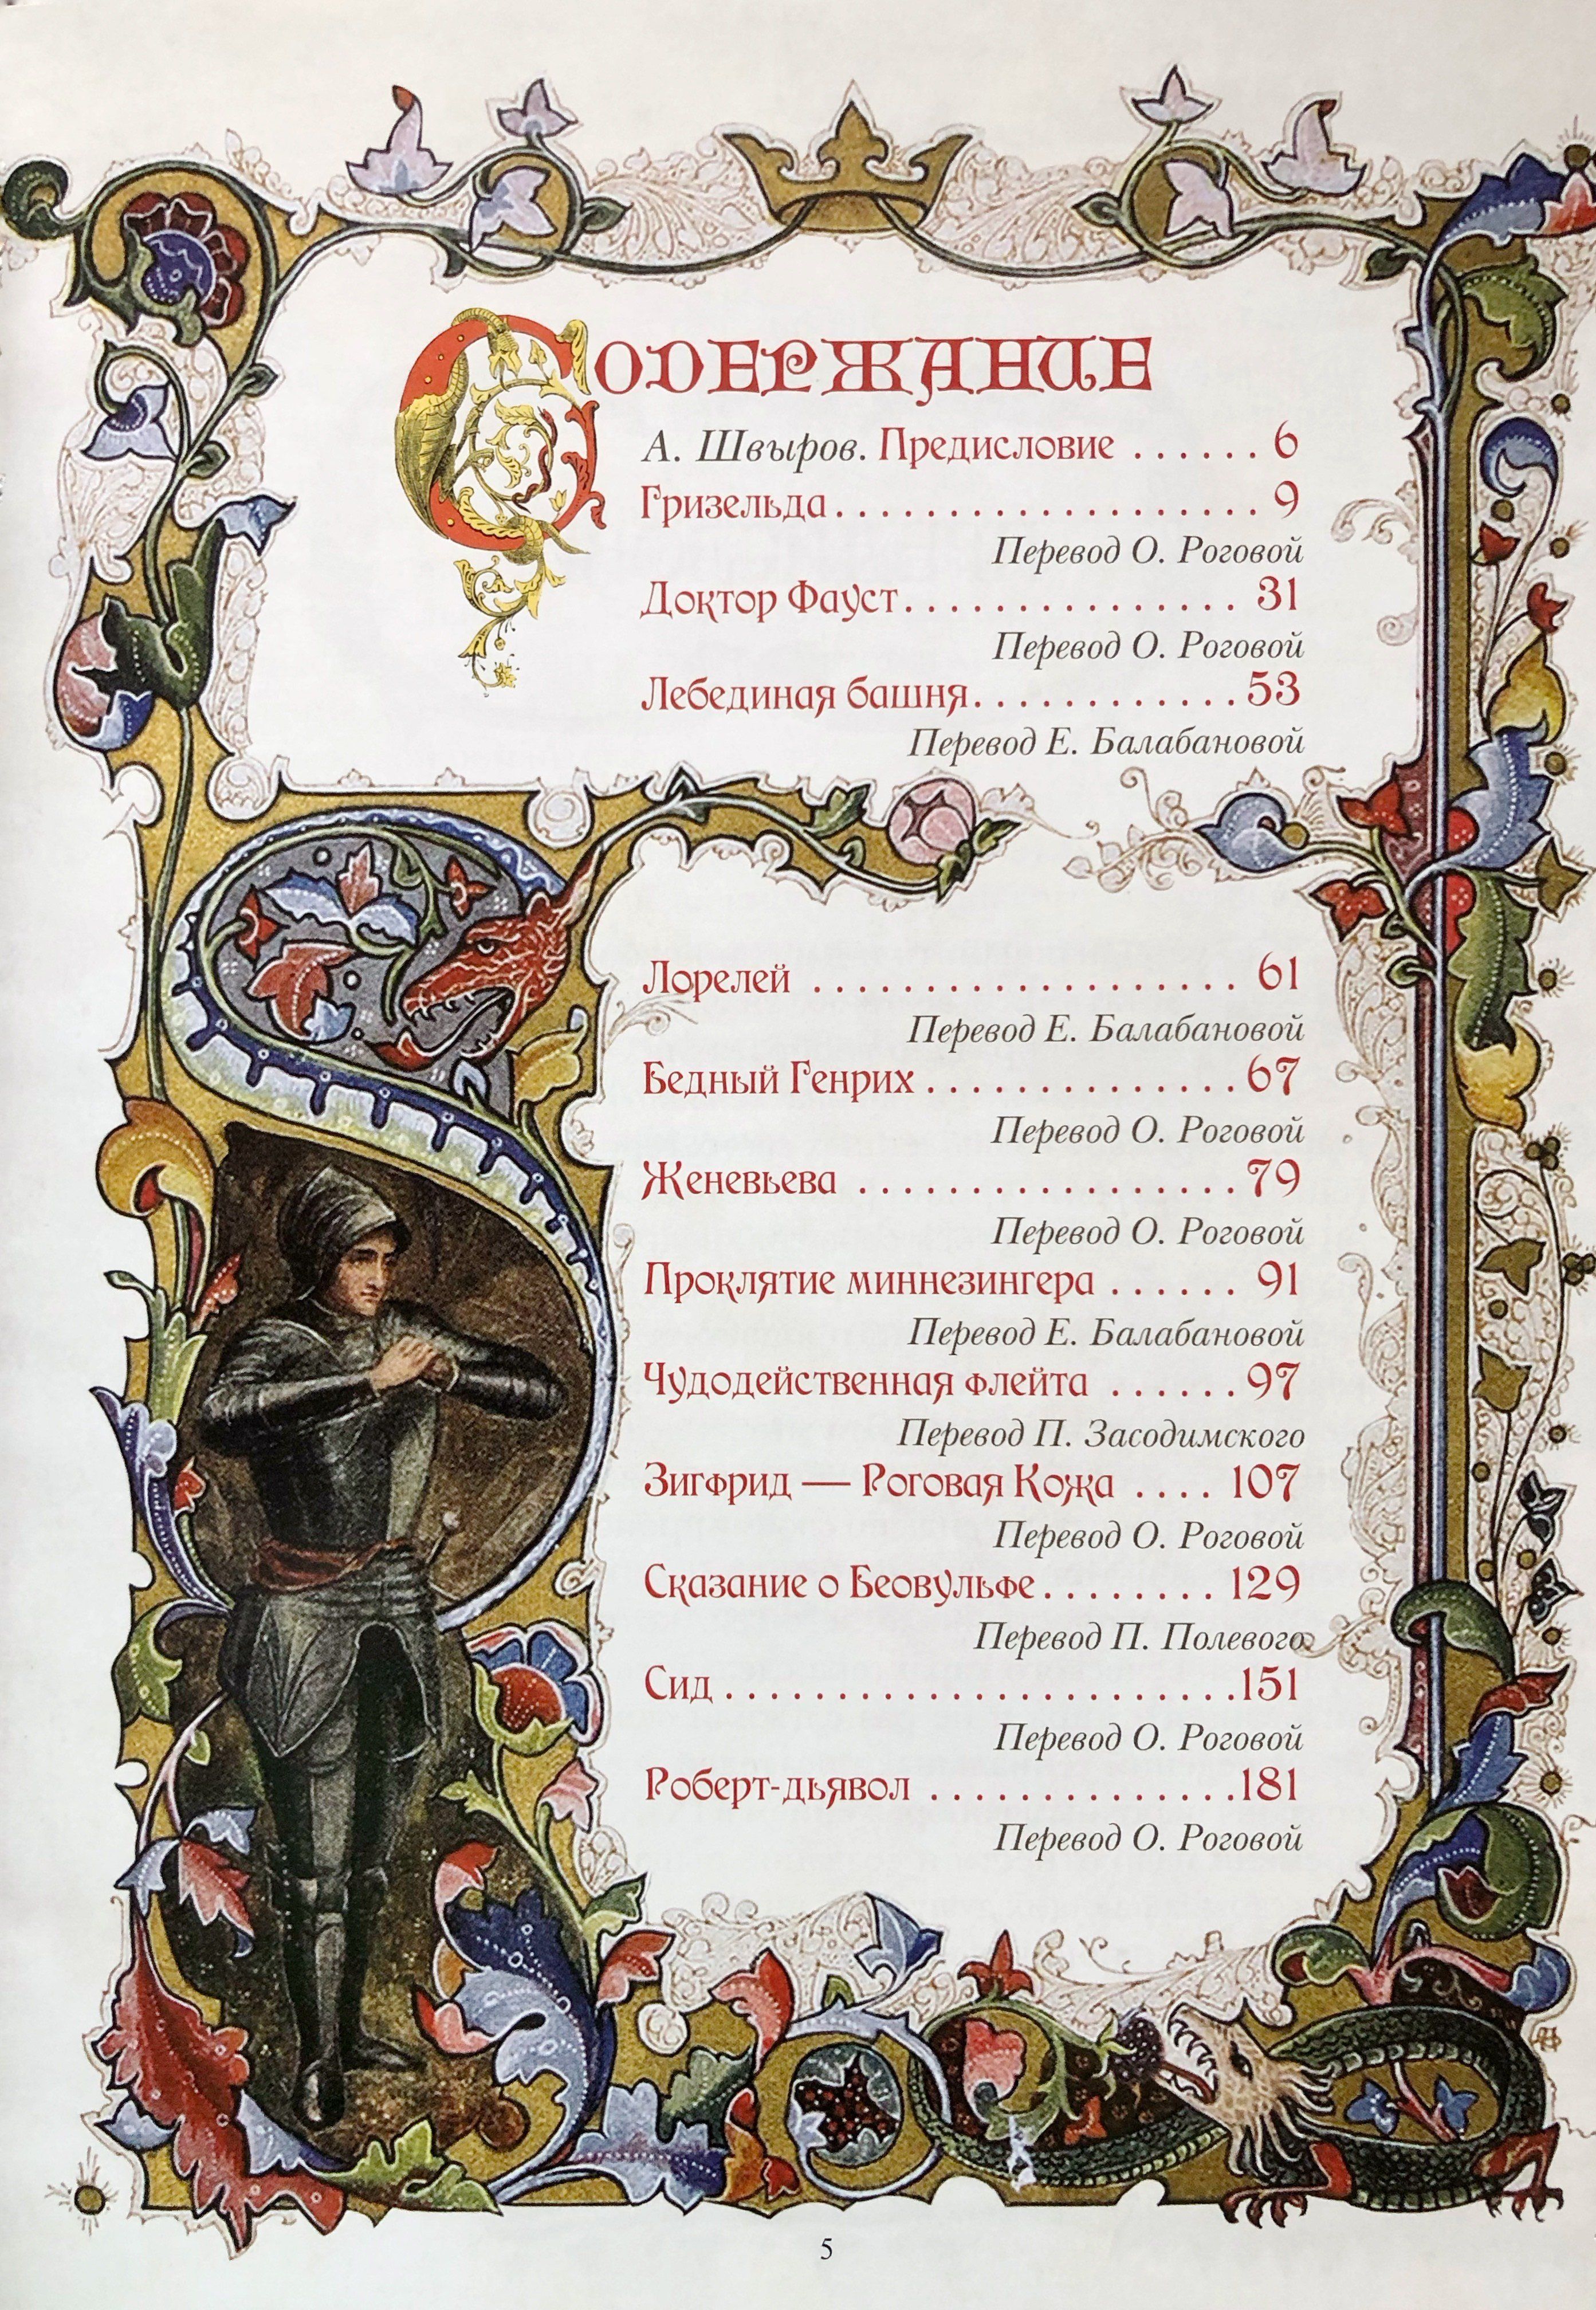 Содержание
А. Швыров. Предисловие . . . . . . 6
Гризельда . . . . . . . . . . . . . . . . . . . 9
Перевод О. Роговой
Доктор Фауст . . . . . . . . . . . . . . . 31
Перевод О. Роговой
Лебединая башня . . . . . . . . . . . . 53
Перевод Е. Балабановой
Лорелей . . . . . . . . . . . . . . . . . . . 61
Перевод Е. Балабановой
Бедный Генрих . . . . . . . . . . . . . . 67
Перевод О. Роговой
Женевьева . . . . . . . . . . . . . . . . . 79
Перевод О. Роговой
Проклятие миннезингера . . . . . . 91
Перевод Е. Балабановой
Чудодейственная флейта . . . . . . 97
Перевод П. Засодимского
Зигфрид — Роговая Кожа . . . . 107
Перевод О. Роговой
Сказание о Беовульфе . . . . . . . . 129
Перевод П. Полевого
Сид . . . . . . . . . . . . . . . . . . . . . . . 151
Перевод О. Роговой
Роберт-дьявол . . . . . . . . . . . . . . 181
Перевод О. Роговой
5